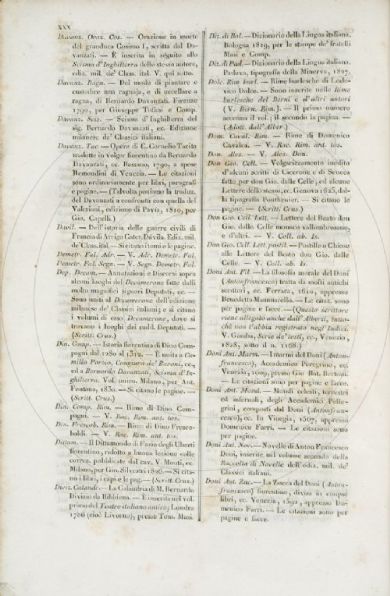 xxx
Davanz. Oraz. Cos. — Orazione in morte
del granduca Cosimo I, scritta dal Da-
vanzati. — È inserita in seguito allo
Scisma d'Inghilterra dello stesso autore,
ediz. mil. de' Class. ital. V. qui sotto.
Davanz. Rag. — Del modo di piantare e
custodire una ragnaja, e di uccellare a
ragna, di Bernardo Davanzati. Firenze
1790, per Giuseppe Tofani e Comp.
Davanz. Scis. — Scisma d'Inghilterra del
sig. Bernardo Davanzati, ec. Edizione
milanese de' Classici italiani.
Davanz. Tac. — Opere di C. Cornelio Tacito
tradotte in volgar fiorentino da Bernardo
Davanzati, ec. Bassano, 1790, a spese
Remondini di Venezia. — Le citazioni
sono ordinariamente per libri, paragrafi
e pagine. — (Talvolta postillata la traduz.
del Davanzati a confronto con quella del
Valeriani, edizione di Pavia, 1810, per
Gio. Capelli.)
Davil. — Dell'istoria delle guerre civili di
Francia di Arrigo Cater. Davila. Ediz. mil.
de' Class. ital. — Si citano i tomi e le pagine.
Demetr. Fal. Adr. — V. Adr. Demetr. Fal.
Demetr. Fal. Segn. — V. Segn. Demetr. Fal.
Dep. Decam. — Annotazioni e Discorsi sopra
alcuni luoghi del Decamerone fatte dalli
molto magnifici signori Deputati, ec. —
Sono uniti al Decamerone dell'edizione
milanese de' Classici italiani; e si citano
i volumi di esso Decamerone, dove si
trovano i luoghi dei cudd. Deputati. —
(Scritt. Crus.)
Din. Comp. — Istoria fiorentina di Dino Com-
pagni dal 1280 al 1312. — È unita a Ca-
millo Porzio, Congiura de' Baroni, ec.,
ed a Bernardo Davanzati, Scisma d'In-
ghilterra. Vol. unico. Milano, per Ant.
Fontana, 1830. — Si citano le pagine. —
(Scritt. Crus.)
Din. Comp. Rim. — Rime di Dino Com-
pagni. — V. Rac. Rim. ant. tos.
Din. Frescob. Rim. — Rime di Dino Fresco-
baldi. — V. Rac. Rim. ant. tos.
Dittam. — Il Dittamondo di Fazio degli Uberti
fiorentino, ridotto a buona lezione colle
correz. pubblicate dal cav. V. Monti, ec.
Milano, per Gio. Silvestri 1826. — Si cita-
no i libri, i capi e le pag. — (Scritt. Crus.)
Diviz. Caland. — La Calandria di M. Bernardo
Divizio da Bibbiena. — È inserita nel vol.
primo del Teatro italiano antico; Londra
1786 (cioè Livorno), presso Tom. Masi.
Diz. di Bol. — Dizionario della Lingua italiana.
Bologna 1819, per le stampe de' fratelli
Masi e Comp.
Diz. di Pad. — Dizionario della Lingua italiana.
Padova, tipografia della Minerva, 1827.
Dolc. Rim. burl. — Rime burlesche di Lodo-
vico Dolce. — Sono inserite nelle Rime
burlesche del Berni e d'altri autori
(V. Bern. Rim.). — Il primo numero
accenna il vol.; il secondo la pagina. —
Dom. Caval. Rim. — Rime di Domenico
Cavalca. — V. Rac. Rim. ant. tos.
Don. Ales. — V. Ales. Don.
Don Gio. Cell. — Volgarizzamento inedito
d'alcuni scritti di Cicerone e di Seneca
fatto per don Gio. dalle Celle, ed alcune
Lettere dello stesso, ec. Genova 1825, dal-
la tipografia Ponthenier. — Si citano le
pagine. — (Scritt. Crus.)
Don Gio. Cell. Lett. — Lettere del Beato don
Gio. dalle Celle monaco vallombrosano,
e d'altri. — V. Cell. ab. Is.
Don Gio. Cell. Lett. postil. — Postille o Chiose
alle Lettere del Beato don Gio. dalle
Celle. — V. Cell. ab. Is.
Doni Ant. Fil. — La filosofia morale del Doni
(Antonfrancesco) tratta da molti antichi
scrittori, ec. Ferrara, 1610, appresso
Benedetto Mammarello. — Le citaz. sono
per pagina e faccia.
Doni Ant. Marm. — I marmi del Doni (Anton-
francesco), Accademico Peregrino, ec.
Venezia, 1609, presso Gio. Bat. Bertoni.
— Le citazioni sono per pagina e facce.
Doni Ant. Mond. — Mondi celesti, terrestri
ed infernali, degli Accademici Pelle-
grini, composti dal Doni (Antonfran-
cesco), ec. In Vinegia, 1607, appresso
Domenico Farri. — Le citazioni sono
per pagine.
Doni Ant. Nov. — Novelle di Anton Francesco
Doni, inserite nel volume secondo della
Raccolta di Novelle dell'ediz. mil. de'
Classici italiani.
Doni Ant. Zuc. — La Zucca del Doni (Anton-
francesco) fiorentino, divisa in cinque
libri, ec. Venezia, 1592, appresso Do-
menico Farri. — Le citazioni sono per
pagine e facce.